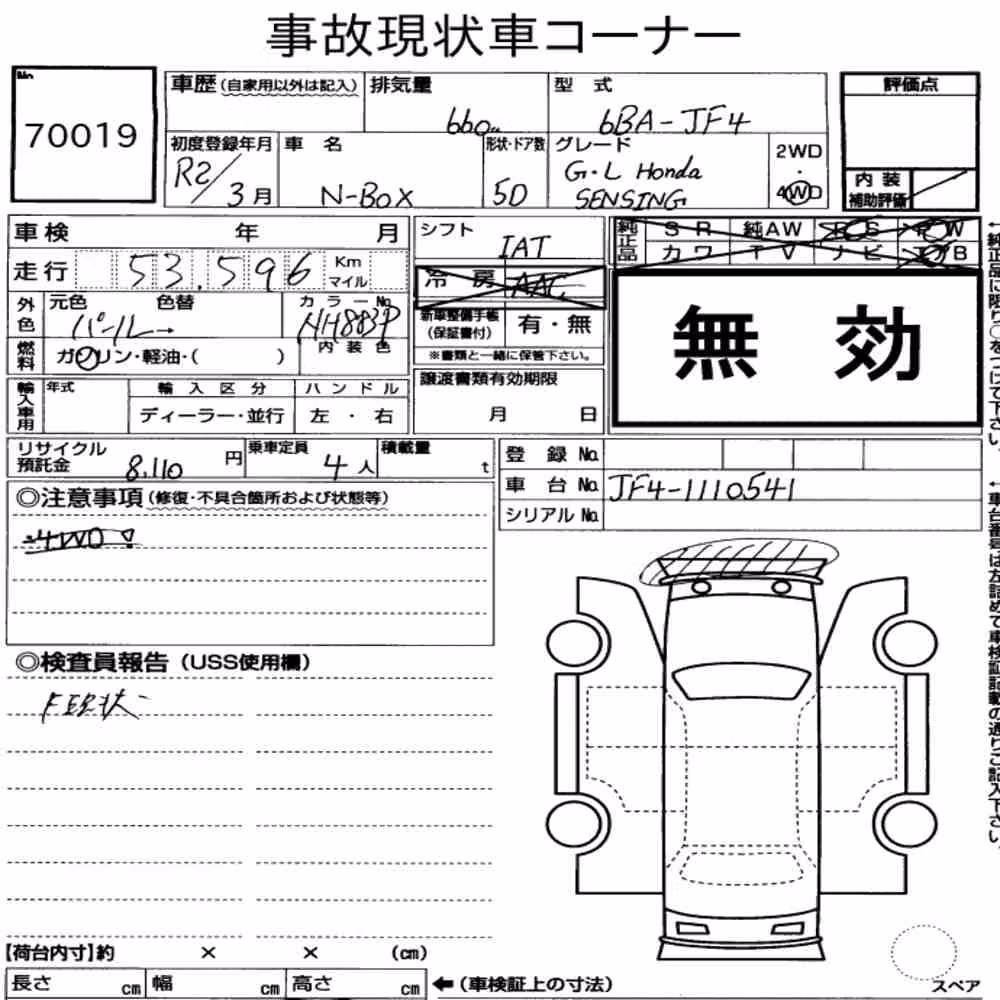 事故現状車コーナー
No.
70019
車歴(自家用以外は記入)
排気量
660cc
型 式
6BA-JF4
評価点
初度登録年月
R2/3月
車 名
N-BOX
形状・ドア数
5D
グレード
G・L Honda
SENSING
2WD
・
4WD
内 装
補助評価
車検 年 月
走行 53,596 Km
マイル
外色
元色 色替
パール
カラーNo.
NH883P
内 装 色
燃料
ガソリン・軽油・( )
輸入車用
年式
輸 入 区 分
ディーラー・並行
ハ ン ド ル
左 ・ 右
シフト
IAT
冷 房
AAC
新車整備手帳
(保証書付)
有・無
※書類と一緒に保管下さい。
譲渡書類有効期限
月 日
純正品
S R
純AW
P S
P W
カ ワ
T V
ナ ビ
エアB
無 効
←純正品に限り○をつけて下さい。
リサイクル
預託金
8,110 円
乗車定員
4 人
積載量
t
登 録 No.
車 台 No.
JF4-1110541
シリアル No.
←車台番号は左詰めて車検証記載の通りご記入下さい。
◎注意事項(修復・不具合箇所および状態等)
4WD
◎検査員報告(USS使用欄)
【荷台内寸】約 × × (cm)
長さ cm
幅 cm
高さ cm
←(車検証上の寸法)
スペア